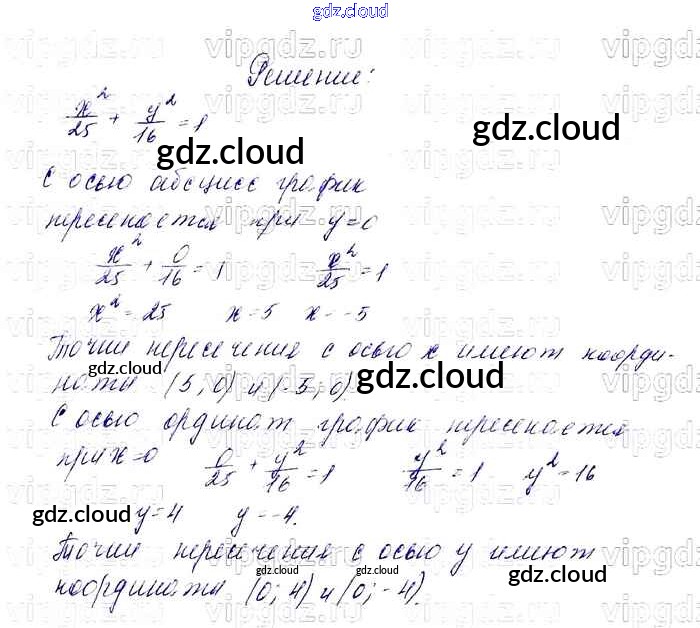 gdz.cloud
Решение:
x²/25 + y²/16 = 1
gdz.cloud gdz.cloud
С осью абсцисс график
пересекается при y=0
x²/25 + 0/16 = 1 x²/25 = 1
x² = 25 x = 5 x = -5
Точки пересечения с осью x имеют коорди-
наты (5; 0) и (-5; 0) gdz.cloud gdz.cloud
С осью ординат график пересекается
при x=0 0/25 + y²/16 = 1 y²/16 = 1 y² = 16
gdz.cloud y=4 y=-4. gdz.cloud
Точки пересечения с осью y имеют
координаты (0; 4) и (0; -4). gdz.cloud gdz.cloud gdz.cloud